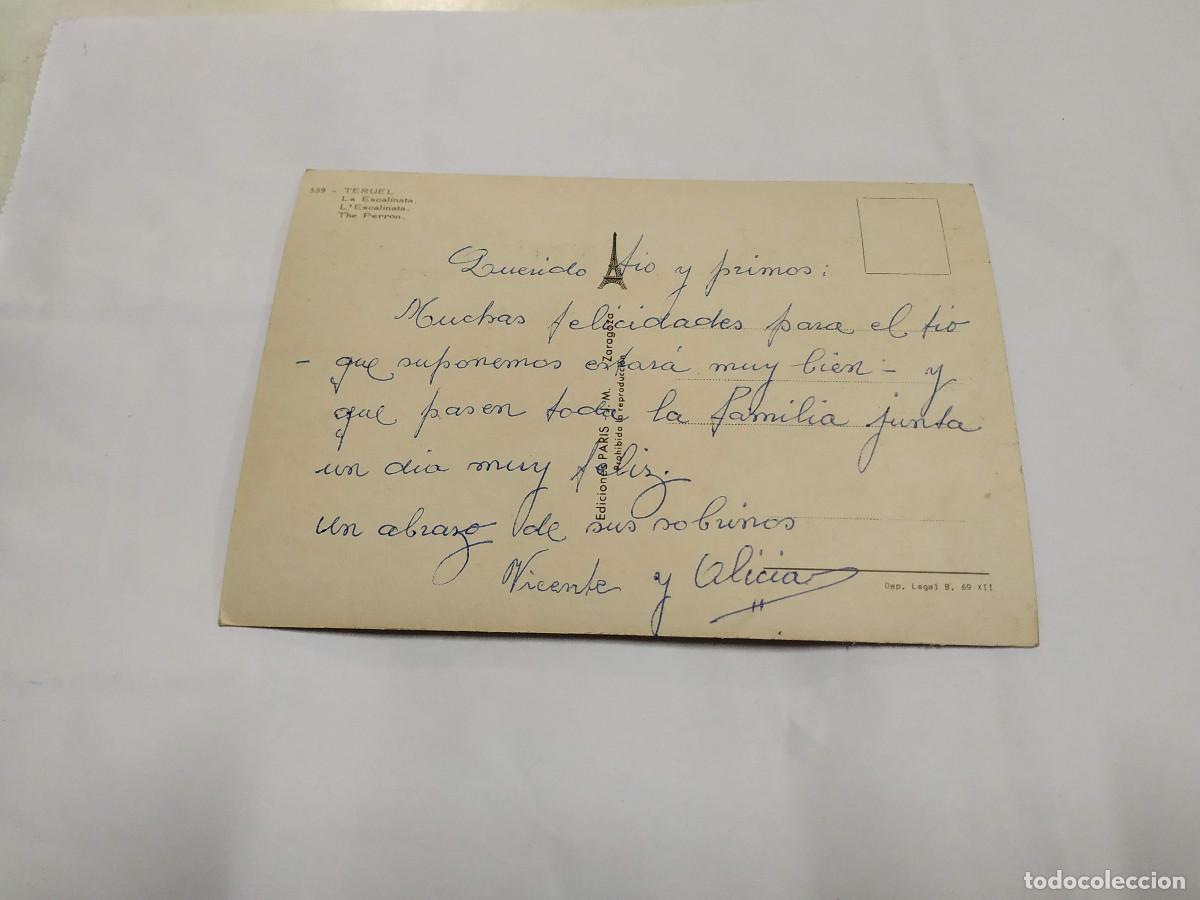 559 - TERUEL
La Escalinata.
L'Escalinata.
The Perron.
Querido tio y primos:
Muchas felicidades para el tio
- que suponemos estará muy bien - y
que pasen toda la familia junta
un dia muy feliz.
un abrazo de sus sobrinos
Vicente y Alicia
Ediciones PARIS J.M. Zaragoza
Prohibida la reproducción
Dep. Legal B. 69 XII
todocoleccion